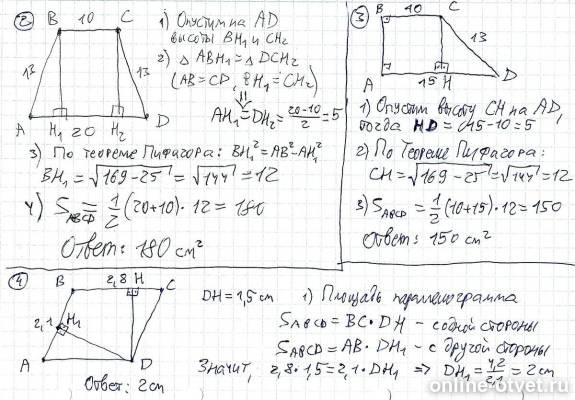 2
B 10 C
13 13
A H₁ 20 H₂ D
1) Опустим на AD
высоты BH₁ и CH₂
2) △ABH₁ = △DCH₂
(AB=CD, BH₁=CH₂)
⇓
AH₁=DH₂= (20-10)/2 =5
3) По теореме Пифагора: BH₁²=AB²-AH₁²
BH₁=√169-25=√144=12
4) S_ABCD = 1/2 (20+10)·12=180
Ответ: 180 см²
3
B 10 C
13
A 15 H D
1) Опустим высоту CH на AD,
тогда HD=15-10=5
2) По Теореме Пифагора:
CH=√169-25=√144=12
3) S_ABCD=1/2 (10+15)·12=150
Ответ: 150 см²
4
B 2,8 H C
2,1 H₁
A D
Ответ: 2см
DH=1,5см
1) Площадь параллелограмма
S_ABCD=BC·DH - с одной стороны
S_ABCD=AB·DH₁ - с другой стороны
Значит, 2,8·1,5=2,1·DH₁ ⇒ DH₁=4,2/2,1=2см
online-otvet.ru